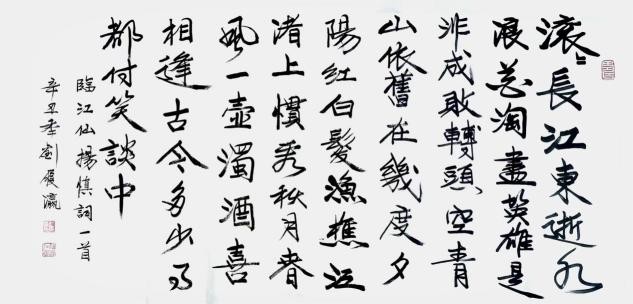 滚々長江東逝水
浪花淘盡英雄是
非成敗轉頭空青
山依舊在幾度夕
陽红白髮漁樵江
渚上慣看秋月春
風一壺濁酒喜
相逢古今多少事
都付笑談中
臨江仙楊慎詞一首
辛丑年劉履瀛